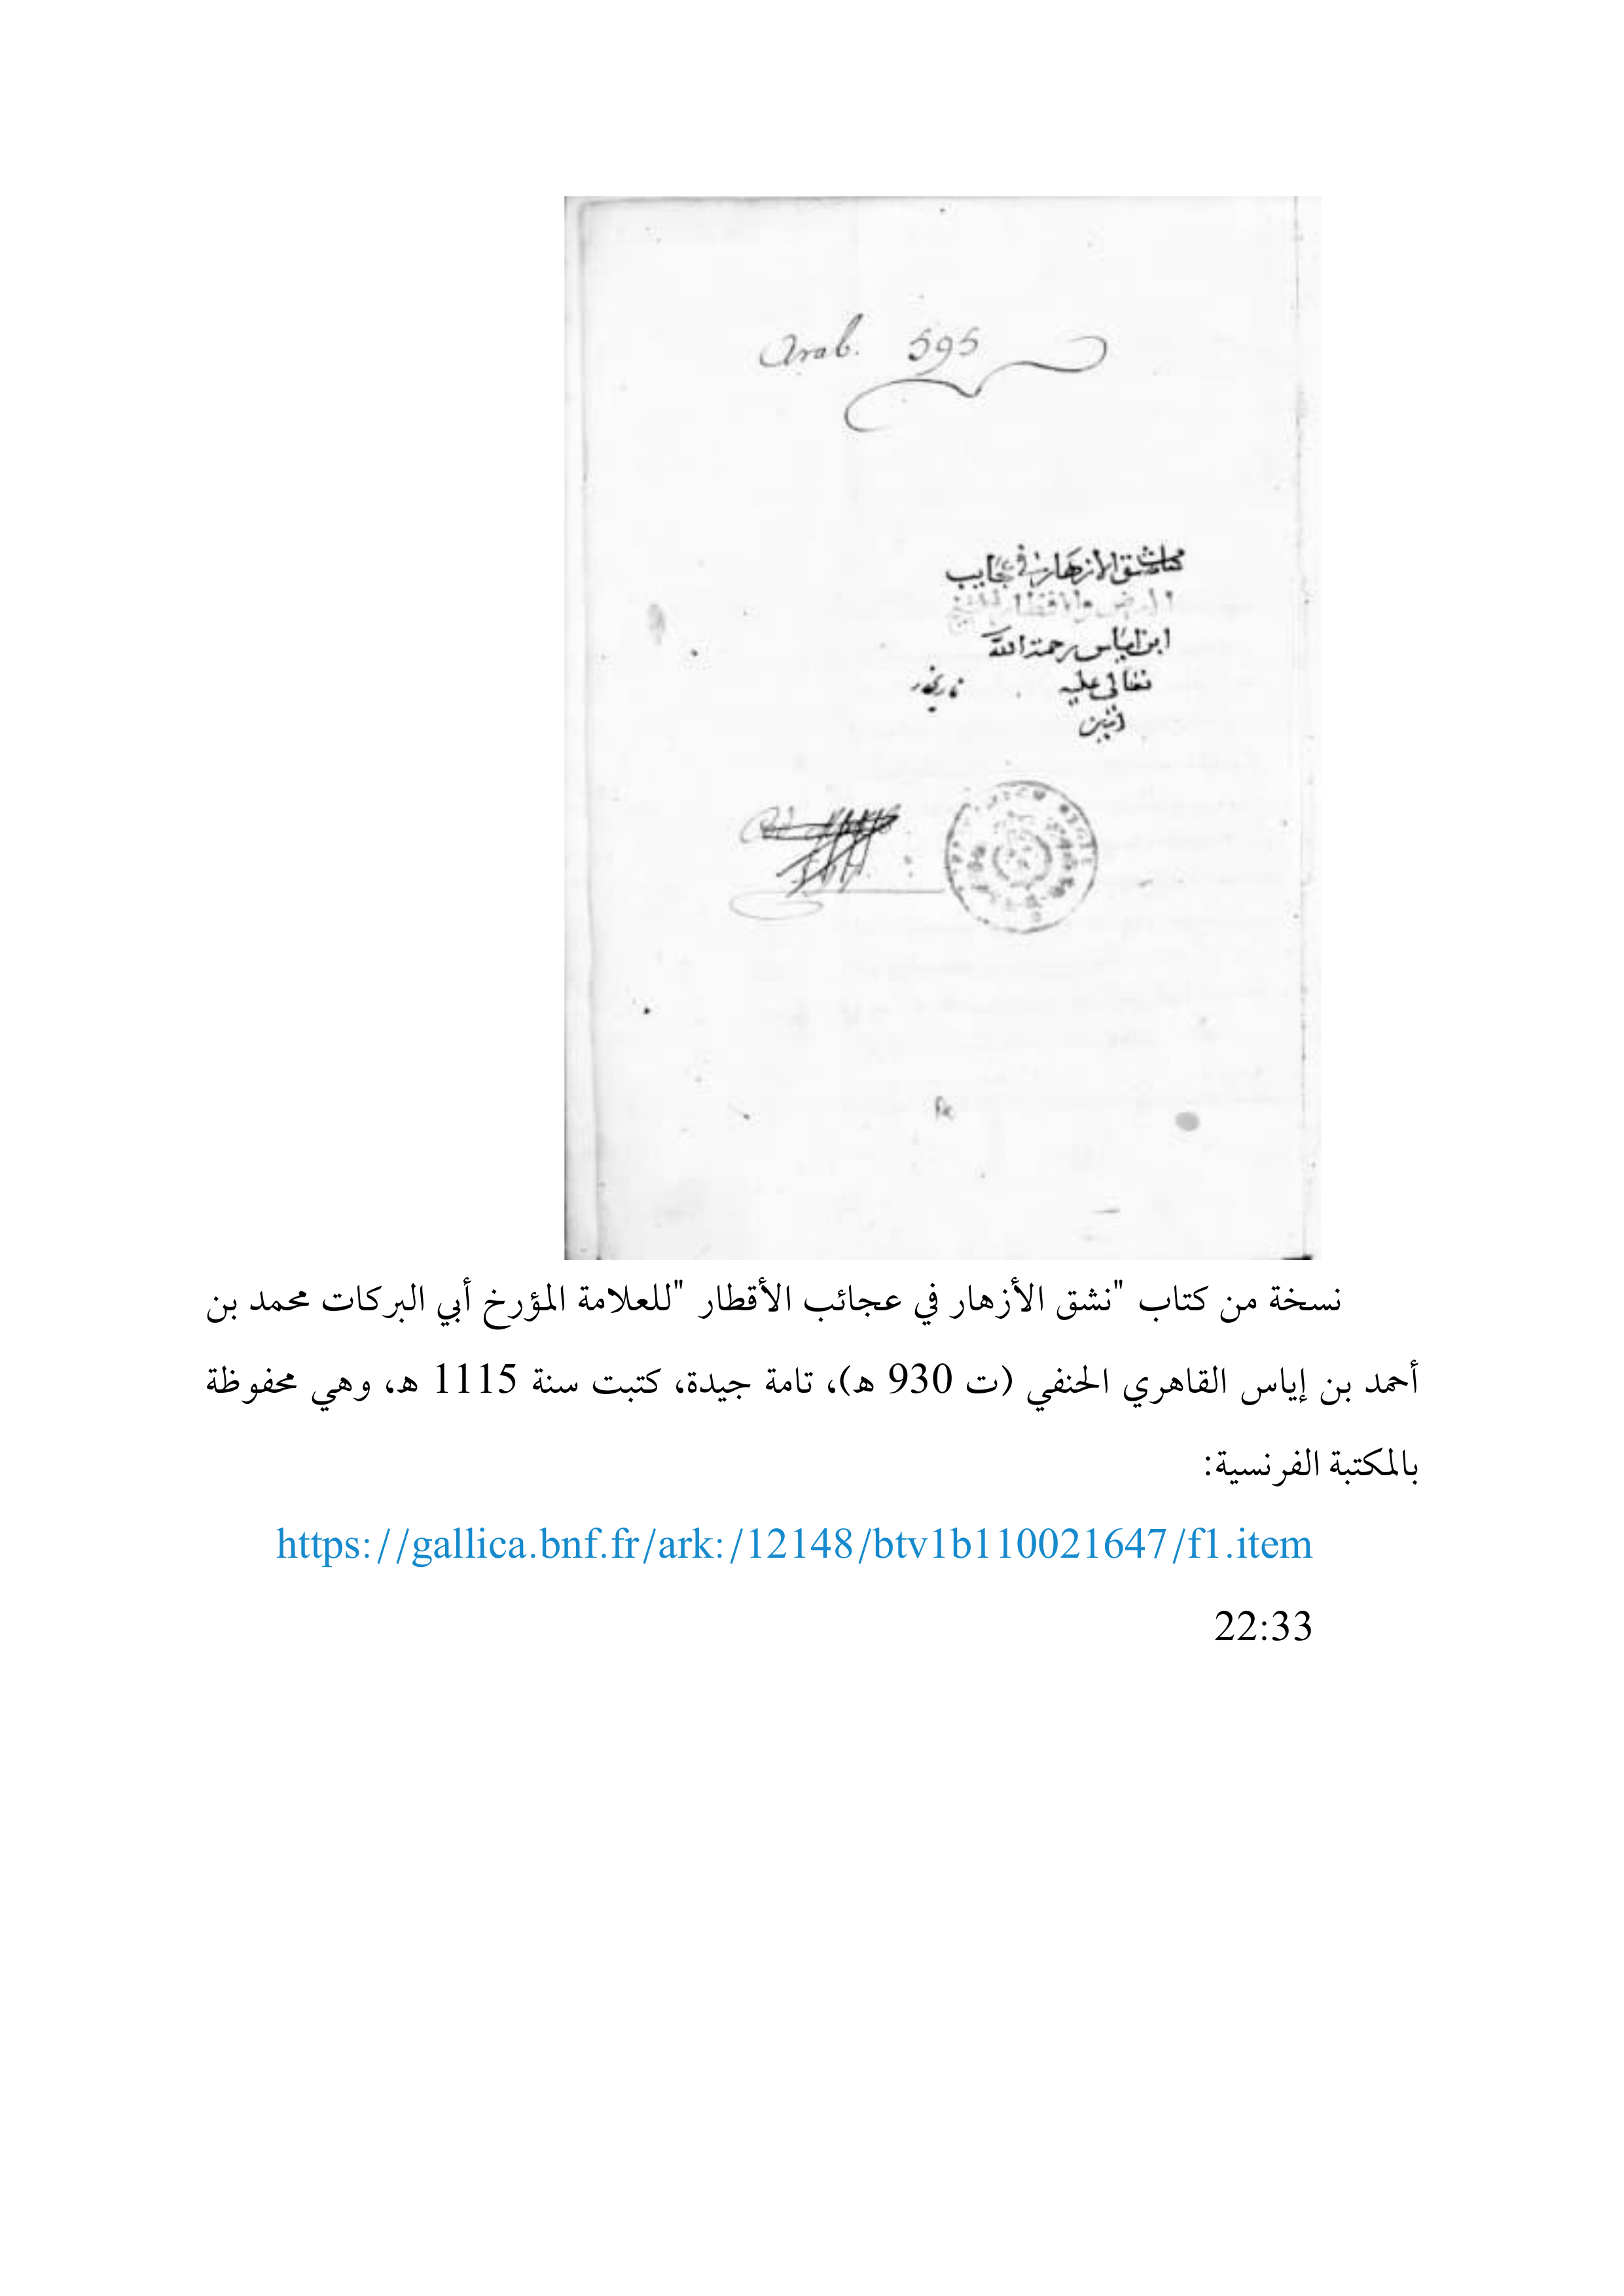 Arab. 595
كتاب نشق الازهار في عجايب
الارض والاقطار للشيخ
ابن اياس رحمة الله
تعالى عليه
امين
نسخة من كتاب "نشق الأزهار في عجائب الأقطار "للعلامة المؤرخ أبي البركات محمد بن
أحمد بن إياس القاهري الحنفي (ت 930 هـ)، تامة جيدة، كتبت سنة 1115 هـ، وهي محفوظة
بالمكتبة الفرنسية:
https://gallica.bnf.fr/ark:/12148/btv1b110021647/f1.item
22:33